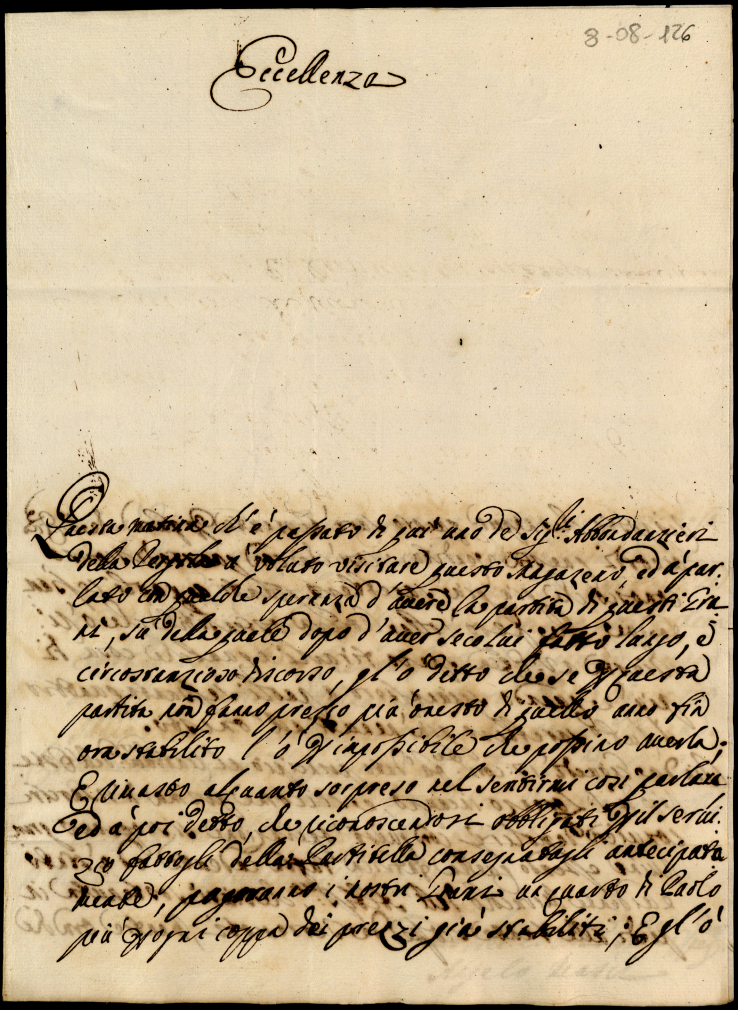 8-08-126
Eccellenza
Questa mattina ch'è passato di quì uno de Sig.ri Abbondanzieri
della à voluto visitare questo Magazeno, ed à par-
lato con qualche speranza d'avere la partita di questi Gra-
ni, su della quale dopo d'aver seco lui fatto lungo, e
circostanzioso discorso, gl'ò detto che se p questa
partita non fanno prezzo più onesto di quello anno fin
ora stabilito l'ò p impossibile che possino averla;
E rimasto alquanto sorpreso nel sentirmi così parlare
ed à poi detto, che riconoscendosi obbligati p il servi-
zio fattogli della Partitella consegnatagli antecipata
mente, pagaranno i nostri Grani un quarto di Paolo
più p ogni coppa dei prezzi già stabiliti; E gl'ò